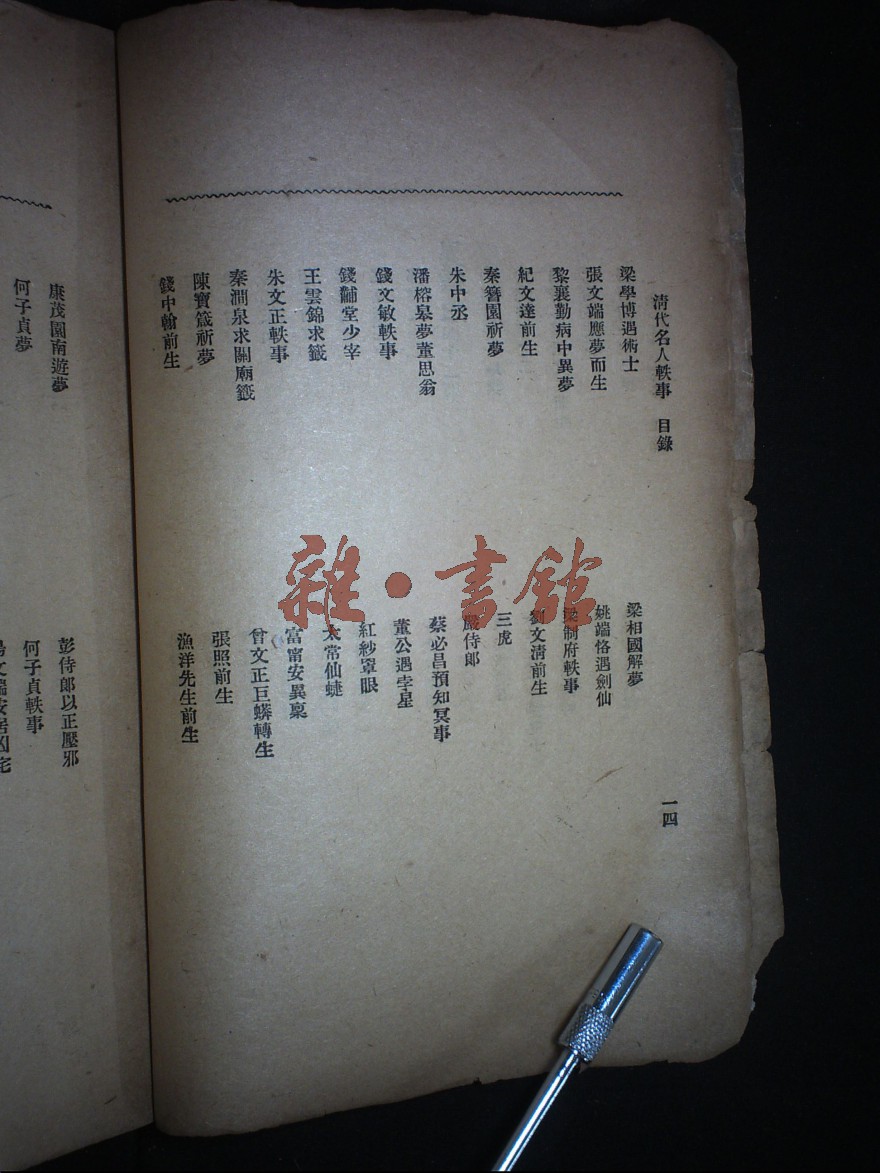 清代名人軼事　目錄
一四
梁學博遇術士
張文端應夢而生
黎襄勤病中異夢
紀文達前生
秦簪園祈夢
朱中丞
潘榕皋夢董思翁
錢文敏軼事
錢黼堂少宰
王雲錦求籤
朱文正軼事
秦澗泉求關廟籤
陳寶箴祈夢
錢中翰前生
梁相國解夢
姚端恪遇劍仙
梁制府軼事
劉文清前生
三虎
嚴侍郎
蔡必昌預知冥事
董公遇孛星
紅紗罩眼
太常仙蜨
富甯安異稟
曾文正巨蟒轉生
張照前生
漁洋先生前生
康茂園南遊夢
何子貞夢
彭侍郎以正壓邪
何子貞軼事
雜·書館